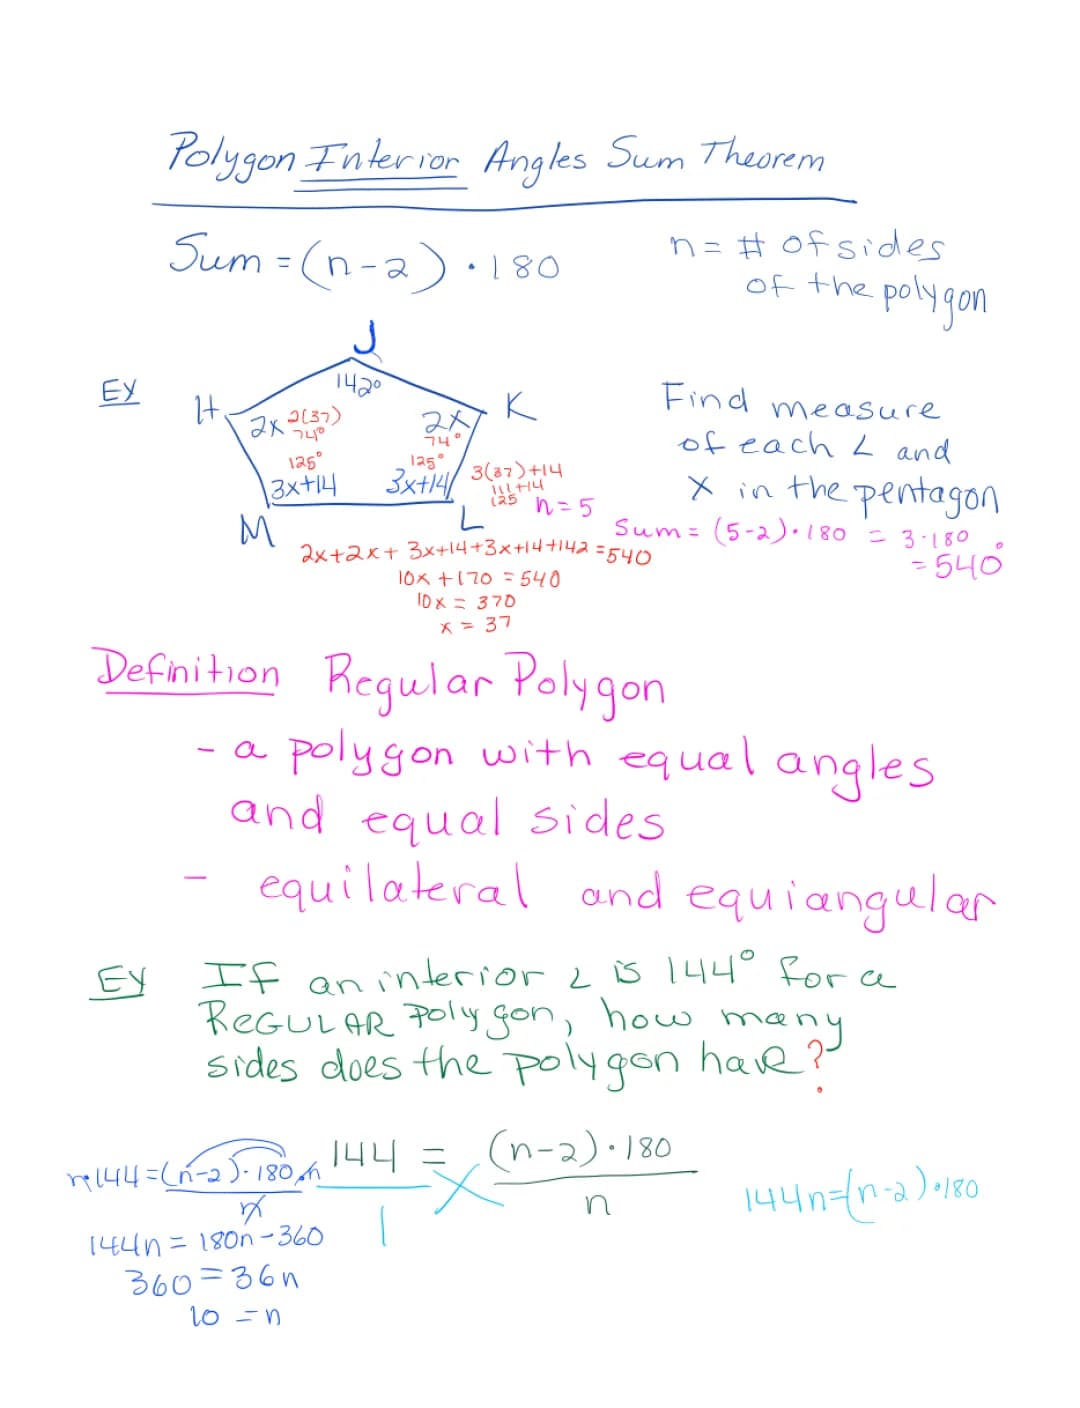 Polygon Interior Angles Sum Theorem
Sum = (n-2) · 180
n = # of sides
of the polygon
EX
J
142°
H
K
2x 2(37)
74°
2x
74°
125°
3x+14
125°
3x+14
3(37)+14
111+14
125
M
L
n = 5
Find measure
of each ∠ and
x in the pentagon
Sum = (5-2)·180 = 3·180
= 540°
2x+2x+3x+14+3x+14+142=540
10x+170 = 540
10x = 370
x = 37
Definition Regular Polygon
- a polygon with equal angles
and equal sides
- equilateral and equiangular
EX If an interior ∠ is 144° for a
REGULAR polygon, how many
sides does the polygon have?
144 = (n-2)·180
1 n
n·144 = (n-2)·180·n
n
144n = 180n-360
360 = 36n
10 = n
144n=(n-2)·180